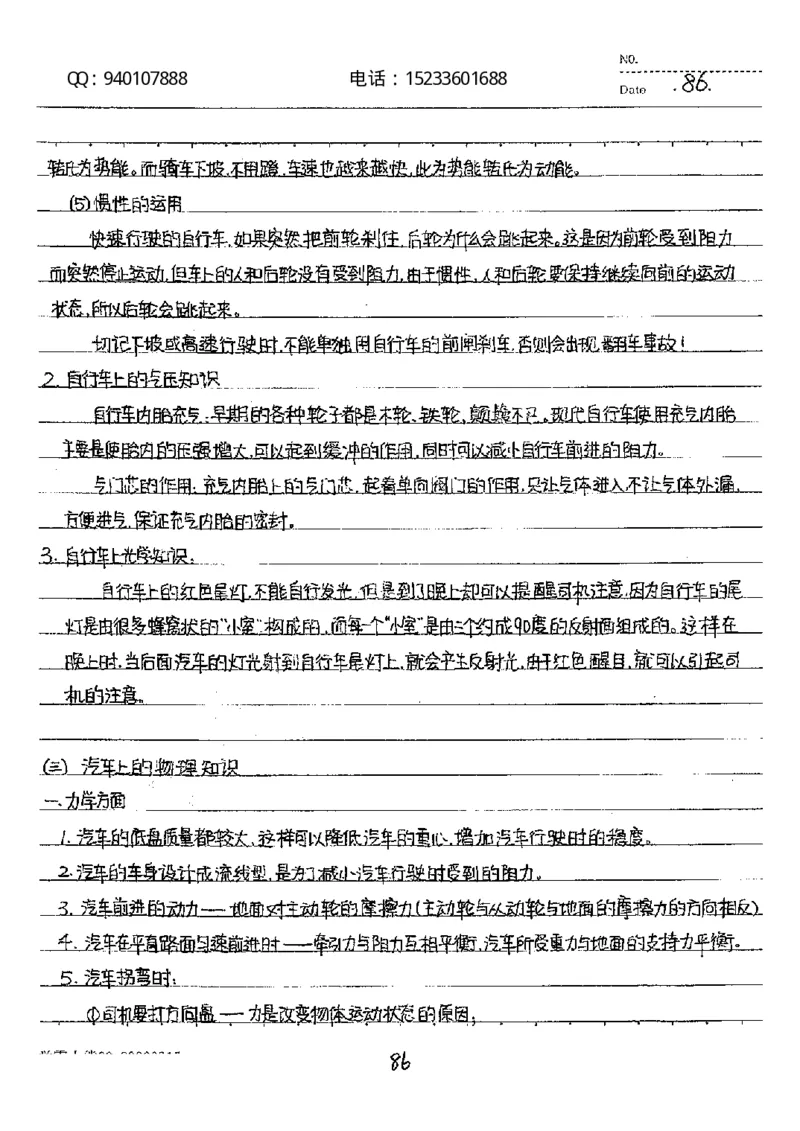 QQ：940107888 电话：15233601688 No.
Date .86.
转化为势能。而骑车下坡,不用蹬,车速也越来越快,此为势能转化为动能。
(5)惯性的运用
快速行驶的自行车,如果突然把前轮刹住,后轮为什么会跳起来。这是因为前轮受到阻力
而突然停止运动,但车上的人和后轮没有受到阻力,由于惯性,人和后轮要保持继续向前的运动
状态,所以后轮会跳起来。
切记下坡或高速行驶时,不能单独用自行车的前闸刹车,否则会出现翻车事故!
2. 自行车上的气压知识
自行车内胎充气:早期的各种轮子都是木轮、铁轮,颠簸不已。现代自行车使用充气内胎
主要是使胎内的压强增大,可以起到缓冲的作用,同时可以减小自行车前进的阻力。
气门芯的作用:充气内胎上的气门芯,起着单向阀门的作用,只让气体进入不让气体外漏,
方便进气,保证充气内胎的密封。
3. 自行车上光学知识.
自行车上的红色尾灯,不能自行发光,但是到了晚上却可以提醒司机注意,因为自行车的尾
灯是由很多蜂窝状的"小室"构成的,而每一个"小室"是由三个约成90度的反射面组成的。这样在
晚上时,当后面汽车的灯光射到自行车尾灯上,就会产生反射光,由于红色醒目,就可以引起司
机的注意。
(三) 汽车上的物理知识
一、力学方面
1. 汽车的底盘质量都较大,这样可以降低汽车的重心,增加汽车行驶时的稳度。
2. 汽车的车身设计成流线型,是为了减小汽车行驶时受到的阻力。
3. 汽车前进的动力——地面对主动轮的摩擦力(主动轮与从动轮与地面的摩擦力的方向相反)
4. 汽车在平直路面匀速前进时——牵引力与阻力互相平衡,汽车所受重力与地面的支持力平衡。
5. 汽车拐弯时:
①司机要打方向盘——力是改变物体运动状态的原因;
86